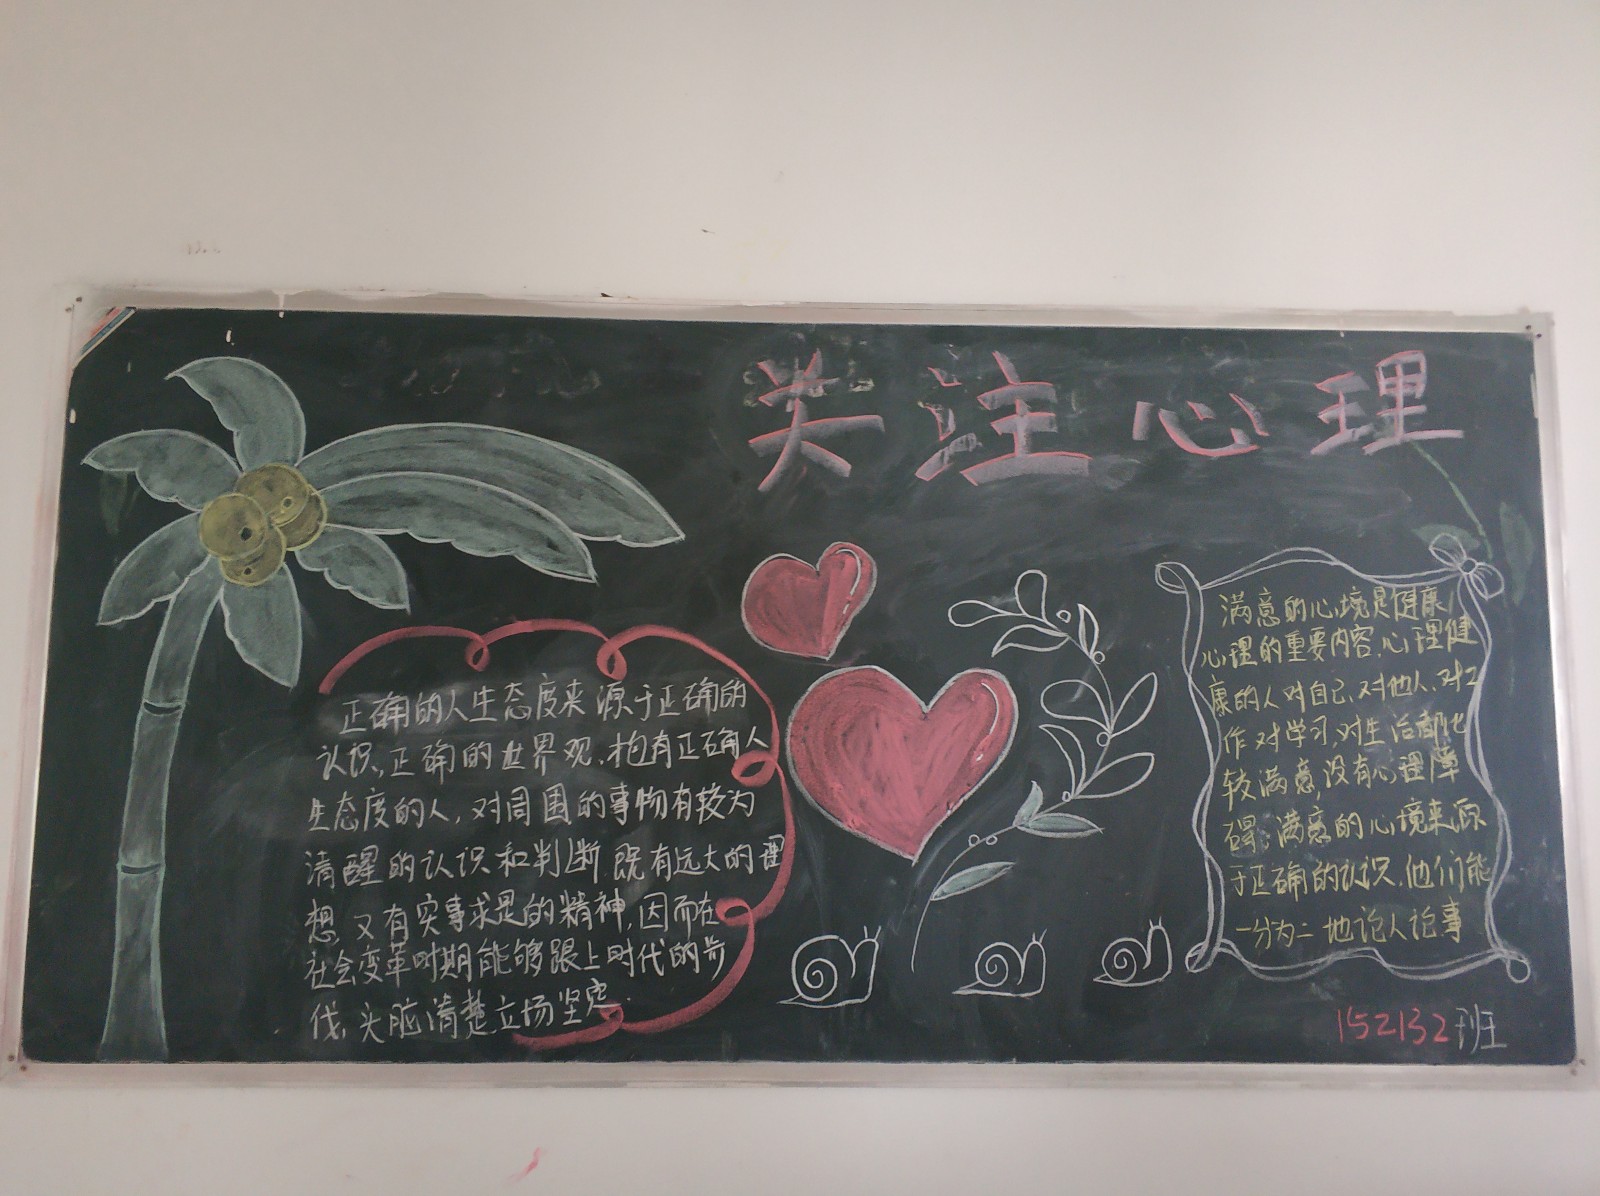 关注心理
正确的人生态度来源于正确的
认识,正确的世界观,抱有正确人
生态度的人,对周围的事物有较为
清醒的认识和判断.既有远大的理
想,又有实事求是的精神,因而在
社会变革时期能够跟上时代的步
伐,头脑清楚,立场坚定.
满意的心境是健康
心理的重要内容,心理健
康的人对自己,对他人,对工
作对学习,对生活都比
较满意,没有心理障
碍,满意的心境来源
于正确的认识,他们能
一分为二地论人论事
152132班